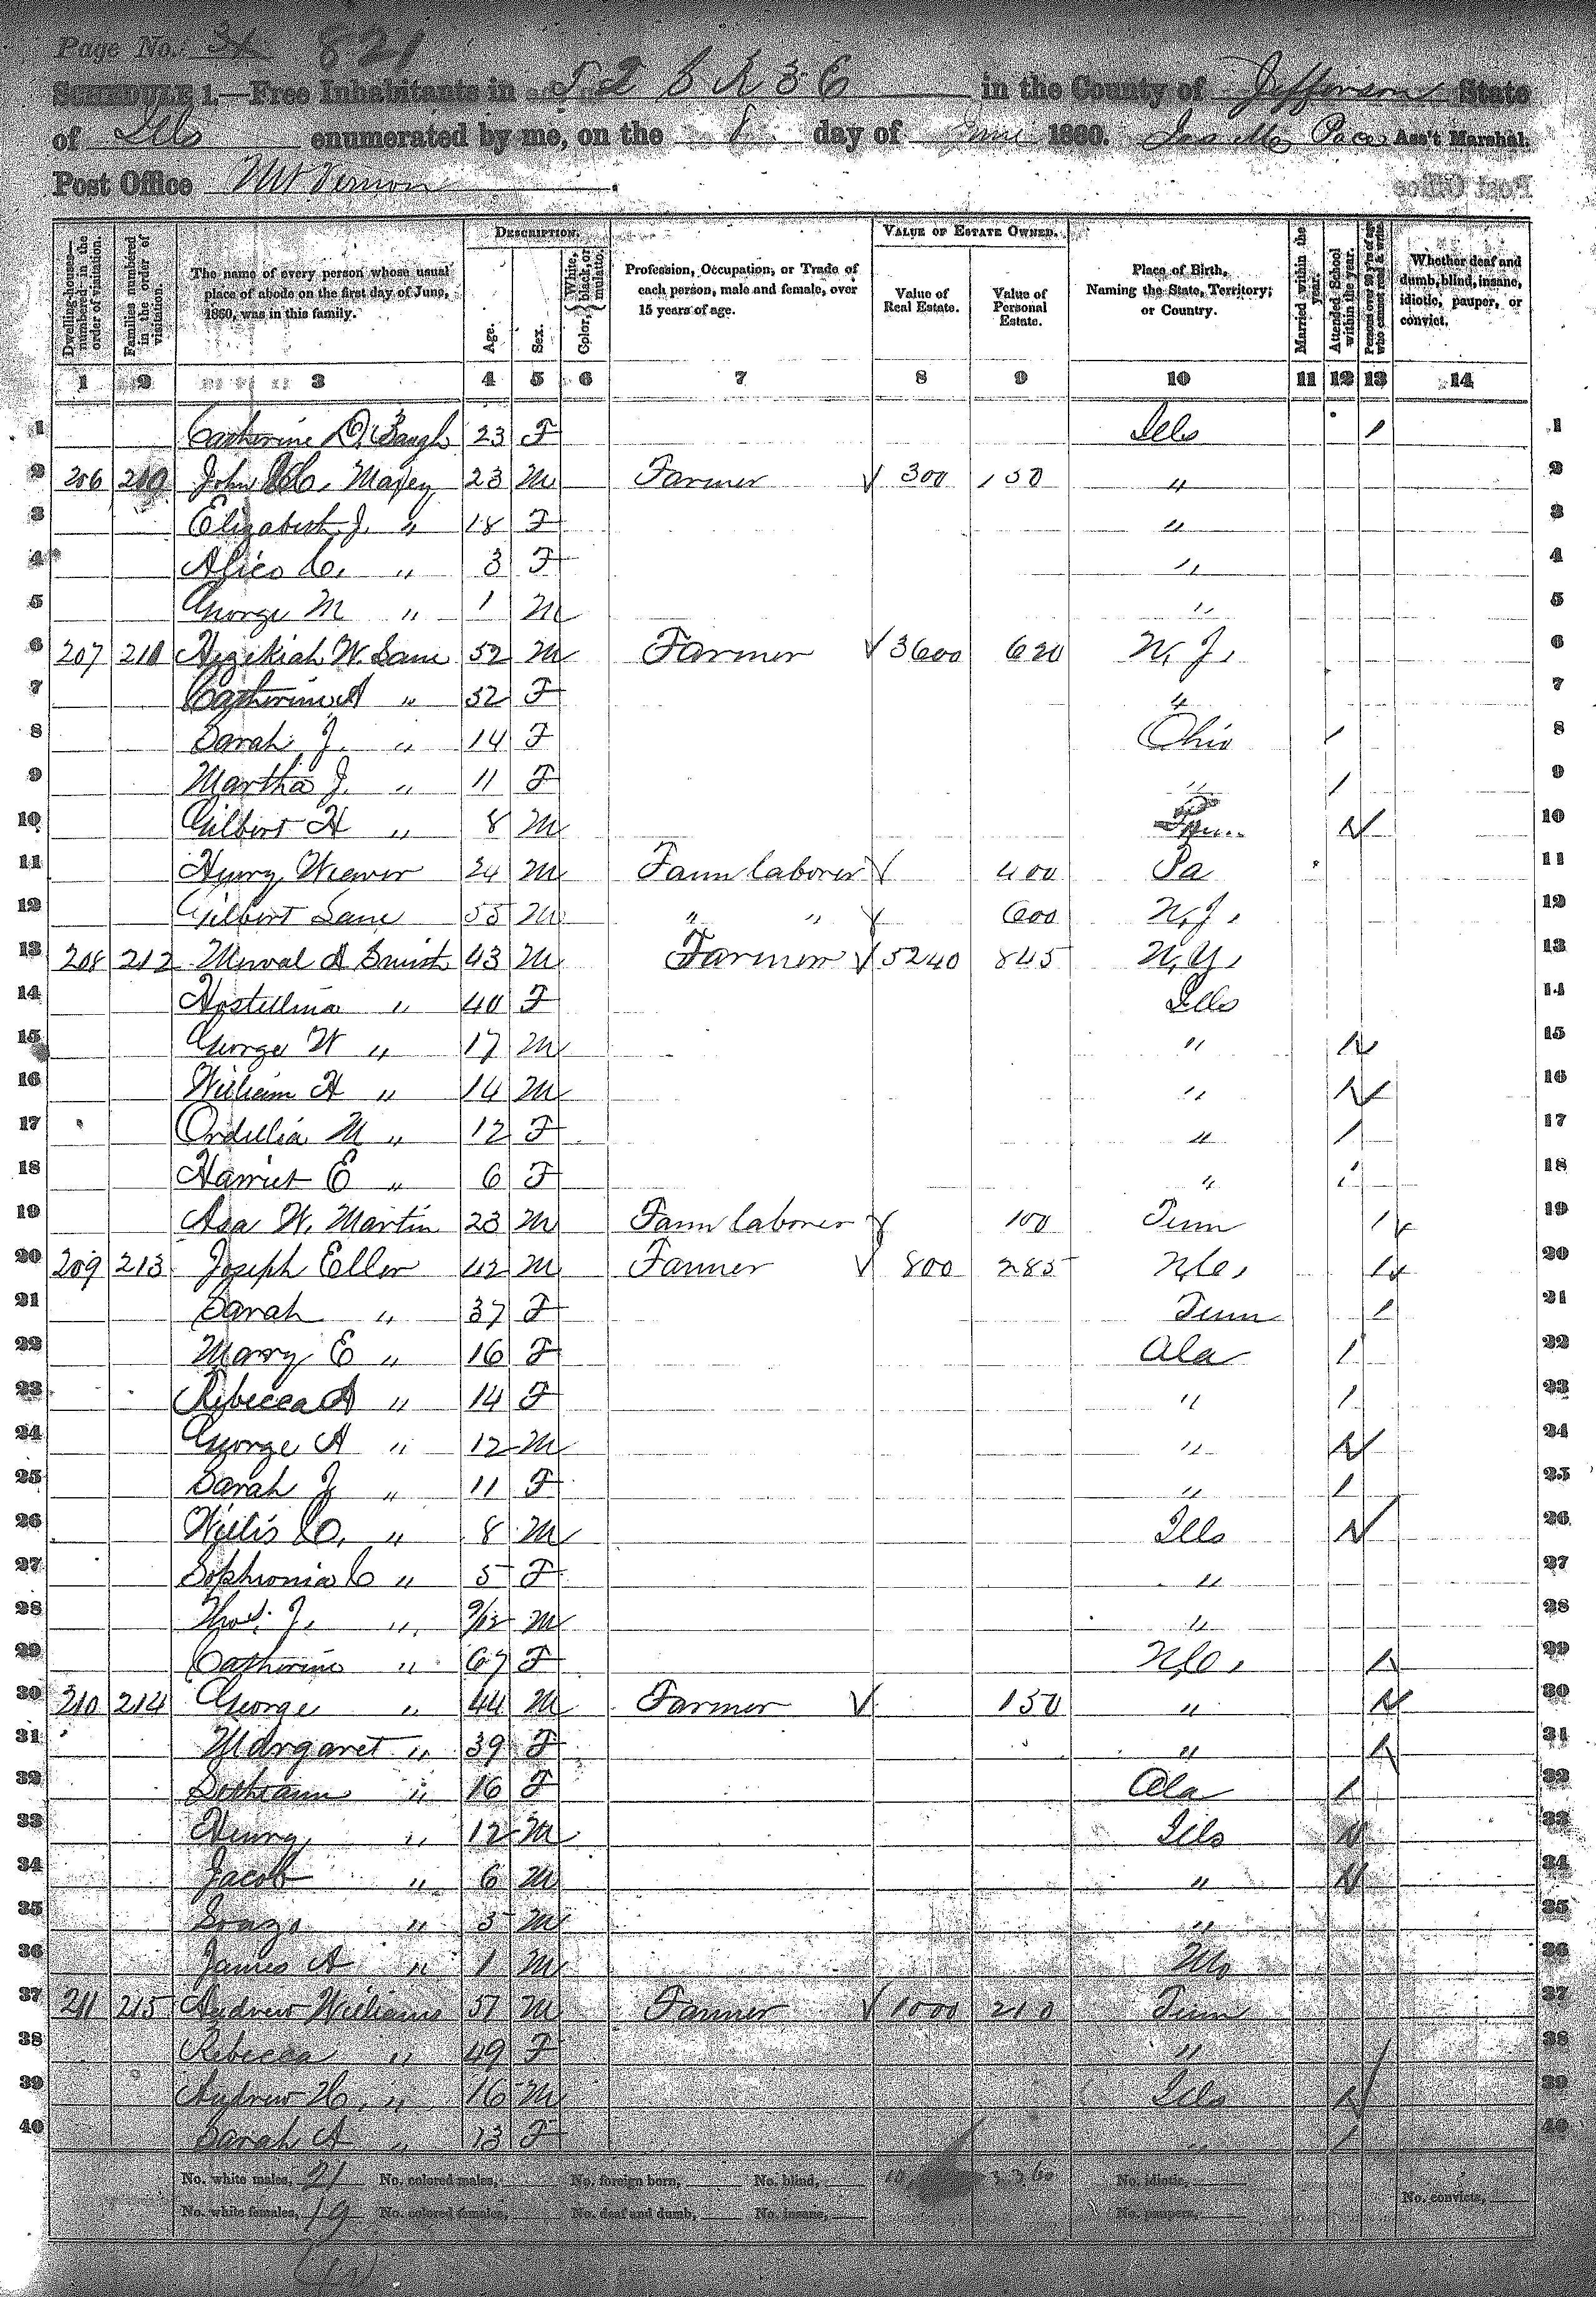 Page No. 34 821
SCHEDULE 1.—Free Inhabitants in S 2 S R 3 E in the County of Jefferson State
of Ills enumerated by me, on the 8 day of June 1860. Pace Ass't Marshal.
Post Office Mt Vernon.
Dwelling-houses—numbered in the order of visitation. Families numbered in the order of visitation. The name of every person whose usual place of abode on the first day of June, 1860, was in this family. DESCRIPTION. Age. Sex. Color, { White, black, or mulatto. Profession, Occupation, or Trade of each person, male and female, over 15 years of age. VALUE OF ESTATE OWNED. Value of Real Estate. Value of Personal Estate. Place of Birth, Naming the State, Territory, or Country. Married within the year. Attended School within the year. Persons over 20 y'rs of age who cannot read & write. Whether deaf and dumb, blind, insane, idiotic, pauper, or convict.
1 2 3 4 5 6 7 8 9 10 11 12 13 14
1 Catherine D. Baugh 23 F Ills / 1
2 206 210 John C. Maxey 23 M Farmer 300 150 " 2
3 Elizabeth J. " 18 F " 3
4 Alice C. " 3 F " 4
5 George M " 1 M " 5
6 207 211 Hezekiah W. Lane 52 M Farmer 3600 620 N.J. 6
7 Catherine A " 32 F " 7
8 Sarah J. " 14 F Ohio / 8
9 Martha J. " 11 F " / 9
10 Gilbert H " 8 M / 10
11 Henry Weaver 24 M Farm laborer 400 Pa 11
12 Gilbert Lane 55 M " " 600 N.J. 12
13 208 212 43 M Farmer 5240 845 N.Y. 13
14 40 F Ills 14
15 George W " 17 M " / 15
16 William H " 14 M " / 16
17 Ordellia M " 12 F " / 17
18 Harriet E " 6 F " / 18
19 Asa W. Martin 23 M Farm laborer 100 Tenn / 19
20 209 213 Joseph Eller 42 M Farmer 800 285 N.C. / 20
21 Sarah " 37 F Tenn / 21
22 Mary E " 16 F Ala / 22
23 Rebecca A " 14 F " / 23
24 George A " 12 M " / 24
25 Sarah J " 11 F " / 25
26 Willis C. " 8 M Ills / 26
27 Sophronia C " 5 F " 27
28 Thos. J. " 9/12 M " 28
29 Catherine " 67 F N.C. / 29
30 210 214 George " 44 M Farmer 150 " / 30
31 Margaret " 39 F " / 31
32 " 16 F Ala / 32
33 Henry " 12 M Ills / 33
34 Jacob " 6 M " / 34
35 " 3 M " 35
36 James A " 1 M Mo 36
37 211 215 Andrew Williams 51 M Farmer 1000 210 Tenn 37
38 Rebecca " 49 F " 38
39 Andrew H. " 16 M Ills / 39
40 Sarah A " 13 F " / 40
No. white males, 21 No. colored males, No. foreign born, No. blind, 3360 No. idiotic,
No. white females, 19 No. colored females, No. deaf and dumb, No. insane, No. paupers, No. convicts,